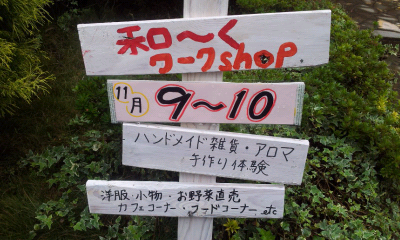 和〜く
ワークshop
11月 9〜10
ハンドメイド雑貨・アロマ
手作り体験
洋服・小物・お野菜直売
カフェコーナー・フードコーナー etc